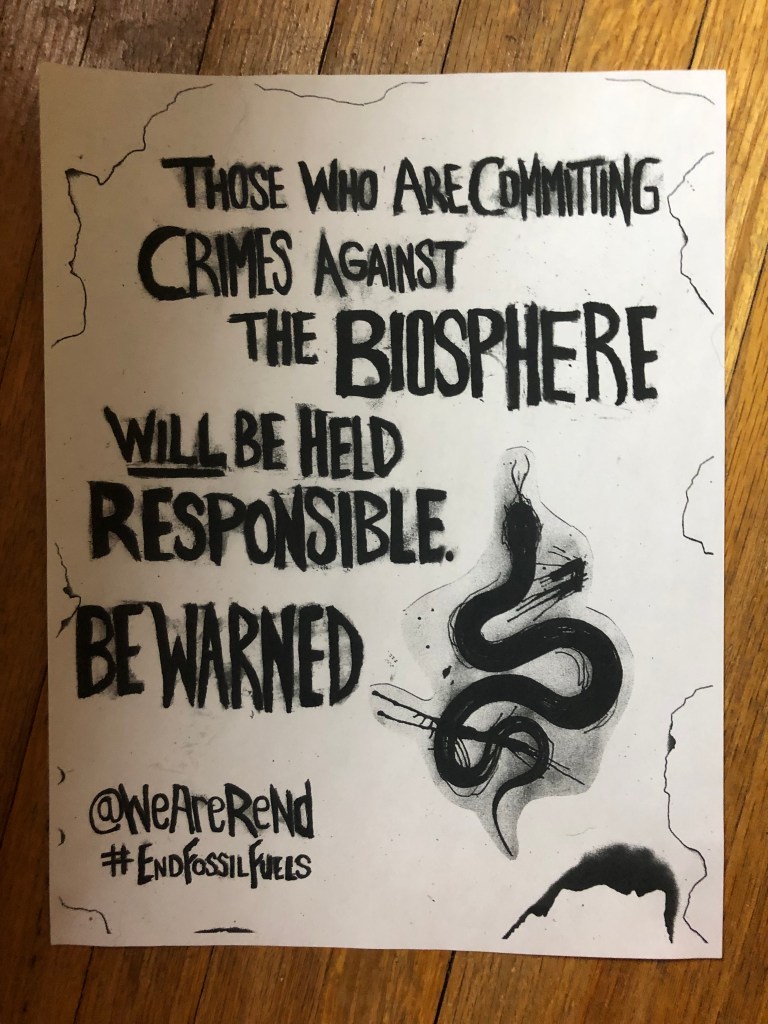 THOSE WHO ARE COMMITTING
CRIMES AGAINST
THE BIOSPHERE
WILL BE HELD
RESPONSIBLE.
BE WARNED
@WeAreReNd
#ENDFOSSILFUELS